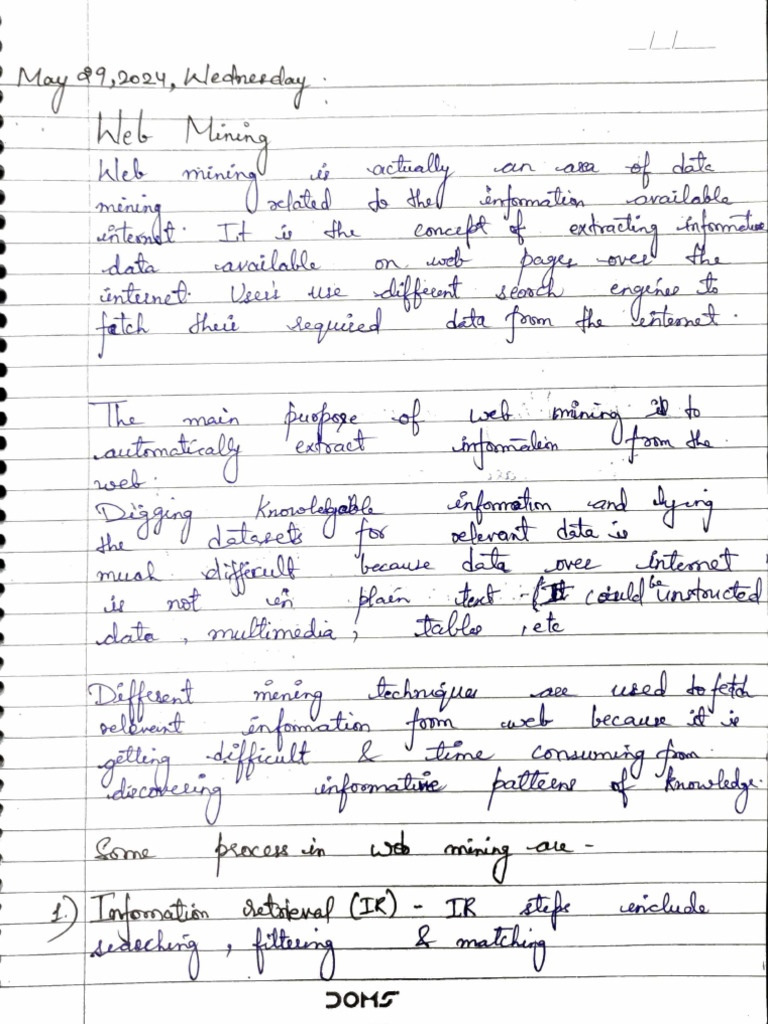 _/_/___
May 29, 2024, Wednesday.
Web Mining
Web mining is actually an area of data
mining related to the information available
internet. It is the concept of extracting informative
data available on web pages over the
internet. User's use different search engines to
fetch their required data from the internet.
The main purpose of web mining is to
automatically extract information from the
web.
Digging knowledgable information and lying
the datasets for relevant data is
much difficult because data over internet
is not in plain text - (It could be unstructed
data, multimedia, tables, etc
Different mining techniques are used to fetch
relevant information form web because it is
getting difficult & time consuming from
discovering informative patterns of knowledge.
Some process in web mining are -
1.) Information retrieval (IR) - IR steps include
searching, filtering & matching
DOMS